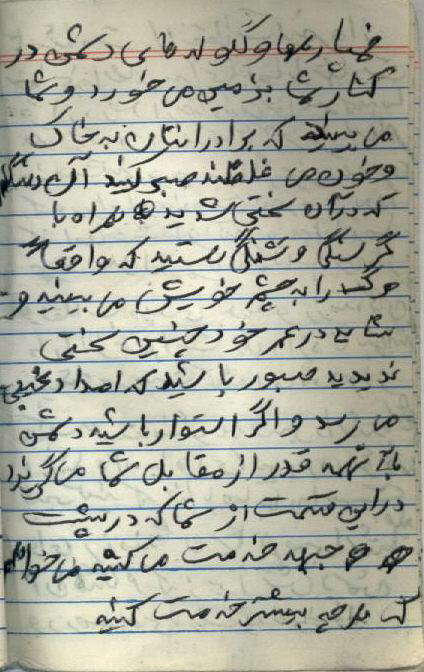 خمپاره‌ها و گلوله‌های دشمن در
کنار شما به زمین می‌خورد و شما
می‌بینید که برادرانتان به خاک
و خون می غلطند صبر کنید آن هنگام
که در آن سختی شدید همراه با
گرسنگی و تشنگی هستید که واقعاً
مرگ را به چشم خویش می‌بینید و
شاید در عمر خود چنین سختی
ندیدید صبور باشید که امداد غیبی
می‌رسد و اگر استوار باشید دشمن
با آنهمه قدر از مقابل شما می‌گریزد
در این قسمت از شما که در پشت
جبهه خدمت می‌کنید می‌خواهم
که هر چه بیشتر خدمت کنید